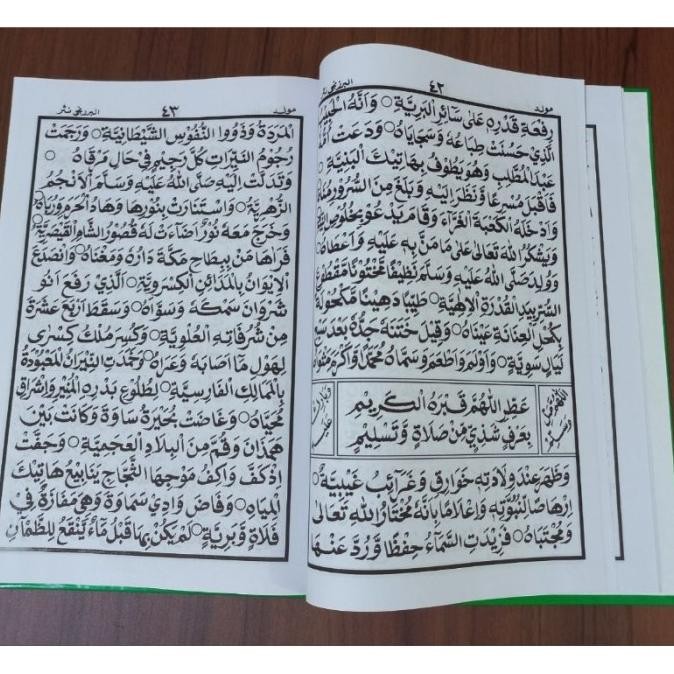 مولد ٤٢ البرزنجي نثر
رِفْعَةِ قَدْرِهِ عَلَى سَائِرِ الْبَرِيَّةِ ○ وَأَنَّهُ الْحَبِيْبُ
الَّذِي حَسُنَتْ طِبَاعُهُ وَسَجَايَاهُ ○ وَدَعَتْ أُمُّهُ
عَبْدَ الْمُطَّلِبِ وَهُوَ يَطُوْفُ بِهَاتِيْكَ الْبَنِيَّةِ ○
فَأَقْبَلَ مُسْرِعًا وَنَظَرَ إِلَيْهِ وَبَلَغَ مِنَ السُّرُوْرِ
وَأَدْخَلَهُ الْكَعْبَةَ الْغَرَّاءَ ○ وَقَامَ يَدْعُوْ بِخُلُوْصِ
وَيَشْكُرُ اللهَ تَعَالَى عَلَى مَا مَنَّ بِهِ عَلَيْهِ وَأَعْطَاهُ ○
وَوُلِدَ صَلَّى اللهُ عَلَيْهِ وَسَلَّمَ نَظِيْفًا مَخْتُوْنًا مَقْطُوْعَ
السُّرِّ بِيَدِ الْقُدْرَةِ الْإِلٰهِيَّةِ ○ طَيِّبًا دَهِيْنًا مَكْحُوْلَةً
بِكُحْلِ الْعِنَايَةِ عَيْنَاهُ ○ وَقِيْلَ خَتَنَهُ جَدُّهُ بَعْدَ سَبْعِ
لَيَالٍ سَوِيَّةٍ ○ وَأَوْلَمَ وَأَطْعَمَ وَسَمَّاهُ مُحَمَّدًا وَأَكْرَمَ مَثْوَاهُ
عَطِّرِ اللّٰهُمَّ قَبْرَهُ الْكَرِيْمَ
بِعَرْفٍ شَذِيٍّ مِنْ صَلَاةٍ وَتَسْلِيْمٍ
وَظَهَرَ عِنْدَ وِلَادَتِهِ خَوَارِقُ وَغَرَائِبُ غَيْبِيَّةٌ ○
إِرْهَاصًا لِنُبُوَّتِهِ وَإِعْلَامًا بِأَنَّهُ مُخْتَارُ اللهِ تَعَالَى
وَمُجْتَبَاهُ ○ فَزِيْدَتِ السَّمَاءُ حِفْظًا وَرُدَّ عَنْهَا
مولد ٤٣ البرزنجي نثر
الْمَرَدَةُ وَذَوُوا النُّفُوْسِ الشَّيْطَانِيَّةِ ○ وَرَجَمَتْ
رُجُوْمُ النَّيِّرَاتِ كُلَّ رَجِيْمٍ فِي حَالِ مَرْقَاهُ ○
وَتَدَلَّتْ إِلَيْهِ صَلَّى اللهُ عَلَيْهِ وَسَلَّمَ الْأَنْجُمُ
الزُّهْرِيَّةُ ○ وَاسْتَنَارَتْ بِنُوْرِهَا وِهَادُ الْحَرَمِ وَرُبَاهُ
وَخَرَجَ مَعَهُ نُوْرٌ أَضَاءَتْ لَهُ قُصُوْرُ الشَّامِ الْقَيْصَرِيَّةُ ○
فَرَآهَا مَنْ بِبِطَاحِ مَكَّةَ دَارُهُ وَمَغْنَاهُ ○ وَانْصَدَعَ
الْإِيْوَانُ بِالْمَدَائِنِ الْكِسْرَوِيَّةِ ○ الَّذِي رَفَعَ أَنُو
شِرْوَانَ سَمْكَهُ وَسَوَّاهُ ○ وَسَقَطَ أَرْبَعَ عَشْرَةَ
مِنْ شُرُفَاتِهِ الْعُلْوِيَّةِ ○ وَكُسِرَ مُلْكُ كِسْرَى
لِهَوْلِ مَا أَصَابَهُ وَعَرَاهُ ○ وَخَمَدَتِ النِّيْرَانُ الْمَعْبُوْدَةُ
بِالْمَمَالِكِ الْفَارِسِيَّةِ ○ لِطُلُوْعِ بَدْرِهِ الْمُنِيْرِ وَإِشْرَاقِ
مُحَيَّاهُ ○ وَغَاضَتْ بُحَيْرَةُ سَاوَةَ وَكَانَتْ بَيْنَ
هَمَذَانَ وَقُمَّ مِنَ الْبِلَادِ الْعَجَمِيَّةِ ○ وَجَفَّتْ
إِذْ كَفَّ وَاكِفُ مَوْجِهَا الثَّجَّاجِ يَنَابِيْعُ هَاتِيْكَ
الْمِيَاهِ ○ وَفَاضَ وَادِيْ سَمَاوَةَ وَهِيَ مَفَازَةٌ فِي
فَلَاةٍ وَبَرِّيَّةٍ ○ لَمْ يَكُنْ بِهَا قَبْلُ مَاءٌ يَنْقَعُ لِلظَّمْآنِ